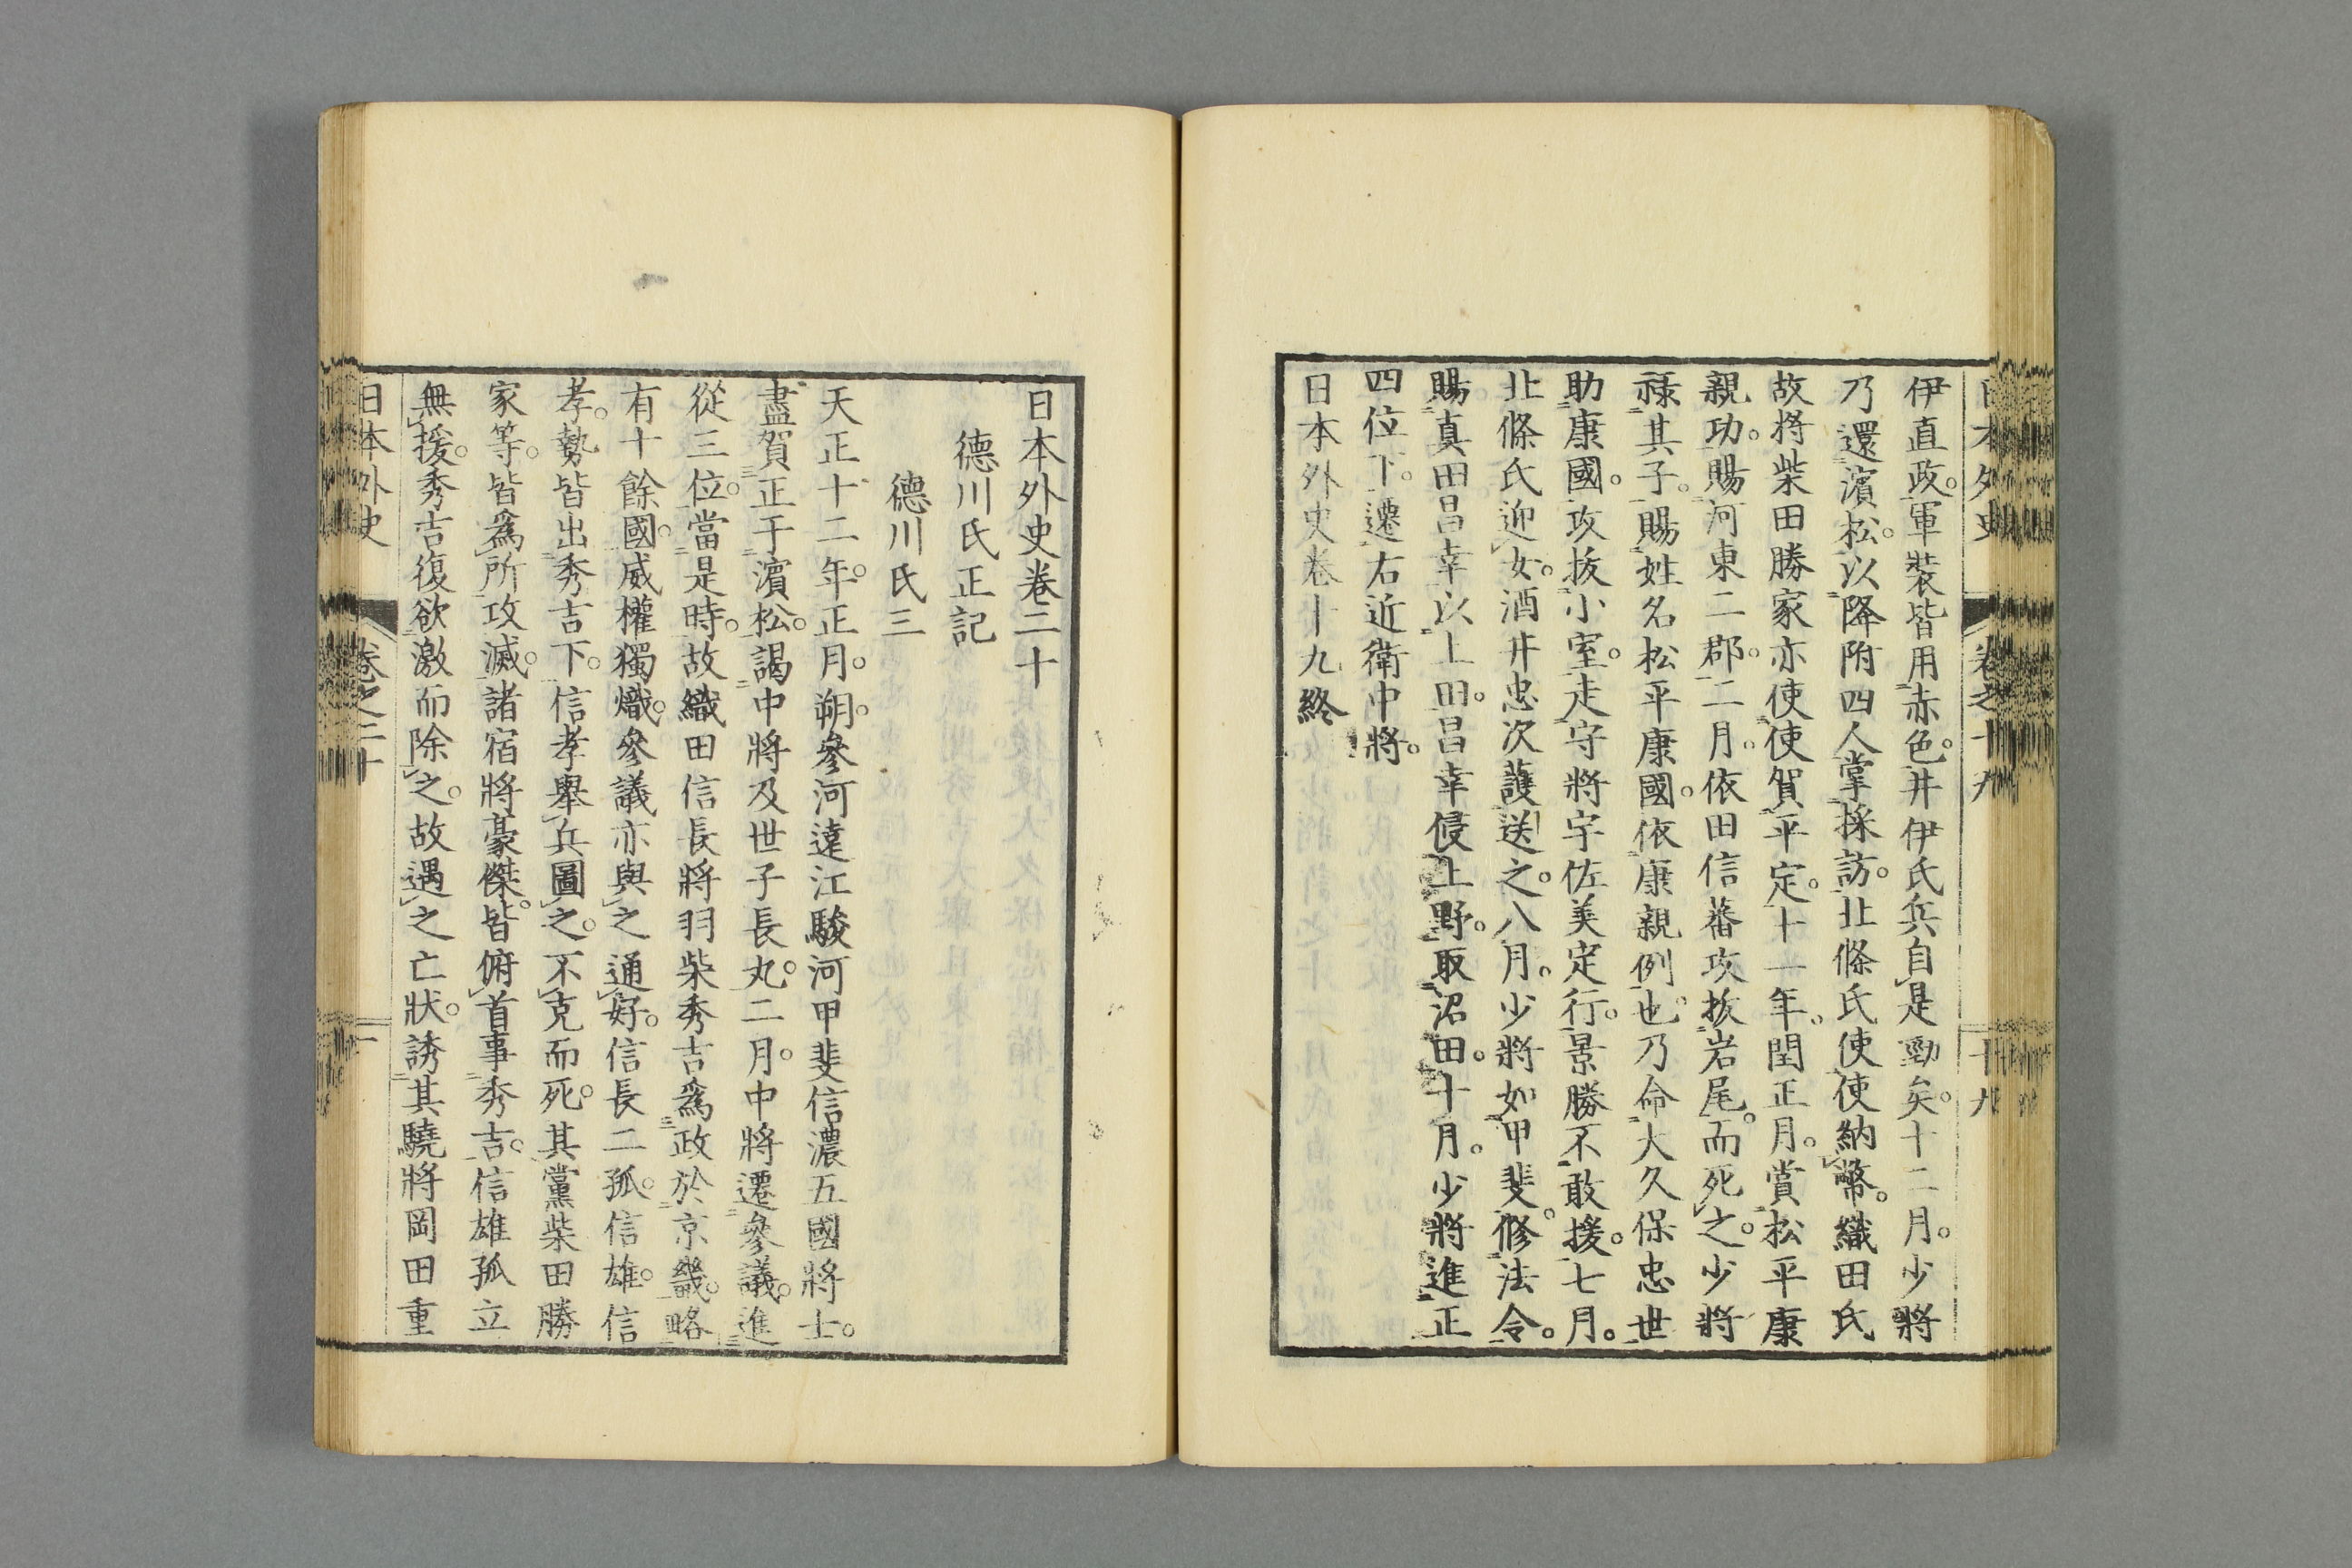 日本外史
卷之十九
十九
伊直政。軍裝皆用赤色。井伊氏兵自是勁矣。十二月。少將
乃還濱松。以降附四人掌採訪。北條氏使使納幣。織田氏
故將柴田勝家亦使使賀平定。十一年。閏正月。賞松平康
親功。賜河東二郡。二月。依田信蕃攻拔岩尾。而死之。少將
祿其子。賜姓名松平康國。依康親例也。乃命大久保忠世
助康國。攻拔小室。走守將宇佐美定行。景勝不敢援。七月。
北條氏迎女。酒井忠次護送之。八月。少將如甲斐。修法令。
賜真田昌幸以上田。昌幸侵上野。取沼田。十月。少將進正
四位下。遷右近衛中將。
日本外史卷十九終
日本外史卷二十
德川氏正記
德川氏三
天正十二年。正月。朔。參河遠江駿河甲斐信濃五國將士。
盡賀正于濱松。謁中將及世子長丸。二月。中將遷參議。進
從三位。當是時。故織田信長將羽柴秀吉爲政於京畿。略
有十餘國。威權獨熾。參議亦與之通好。信長二孤。信雄。信
孝。勢皆出秀吉下。信孝舉兵圖之。不克而死。其黨柴田勝
家等。皆爲所攻滅。諸宿將豪傑。皆俯首事秀吉。信雄孤立
無援。秀吉復欲激而除之。故遇之亡狀。誘其驍將岡田重
日本外史
卷之二十
一